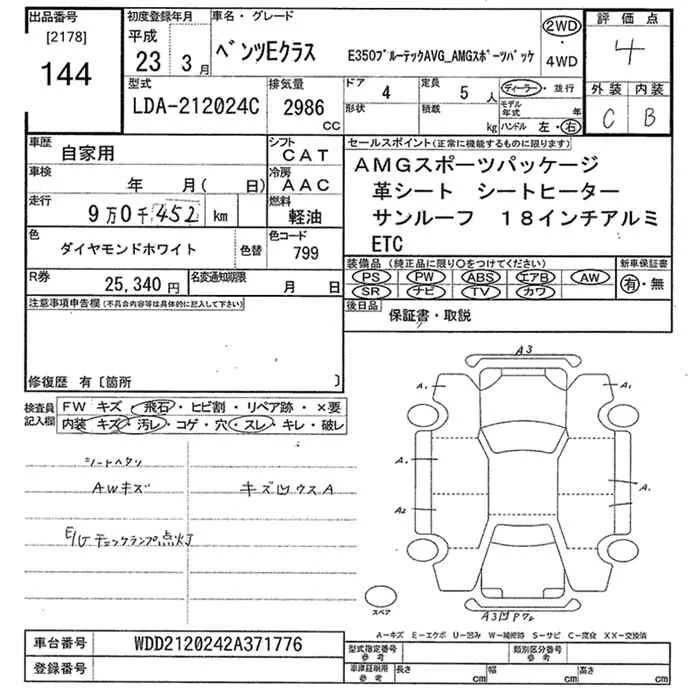 出品番号 初度登録年月 車名・グレード 評価点
[2178] 平成 2WD
144 23 3月 ベンツEクラス E350ブルーテックAVG_AMGスポーツパッケ ・ 4WD 4
型式 排気量 ドア 4 定員 5 人 ディーラー・並行 外装 内装
LDA-212024C 2986 CC 形状 積載 kg モデル年式 年 C B
ハンドル 左・右
車歴 自家用 シフト CAT セールスポイント(正常に機能するものに限ります)
車検 年 月( 日) 冷房 AAC AMGスポーツパッケージ
走行 9万0千452 km 燃料 軽油 革シート シートヒーター
サンルーフ 18インチアルミ
色 ダイヤモンドホワイト 色替 色コード 799 ETC
R券 25,340円 名変通知期限 月 日 装備品(純正品に限り○をつけてください) 新車保証書
PS PW ABS エアB AW 有・無
SR ナビ TV カワ
注意事項申告欄(不具合内容等は具体的に記入して下さい) 後日品 保証書・取説
修復歴 有〔箇所 〕
検査員記入欄 FW キズ・飛石・ヒビ割・リペア跡・×要
内装 キズ・汚レ・コゲ・穴・スレ・キレ・破レ
シートヘタリ
AWキズ キズ凹ウスA
E/Gチェックランプ点灯
A3
A1 A1
A1 A1
A2
スペア A3凹P7L
A-キズ E-エクボ U-凹み W-補修跡 S-サビ C-腐食 XX-交換済
車台番号 WDD2120242A371776 型式指定番号 参考 類別区分番号 参考
登録番号 車庫証明用 参考 長さ cm 幅 cm 高さ cm